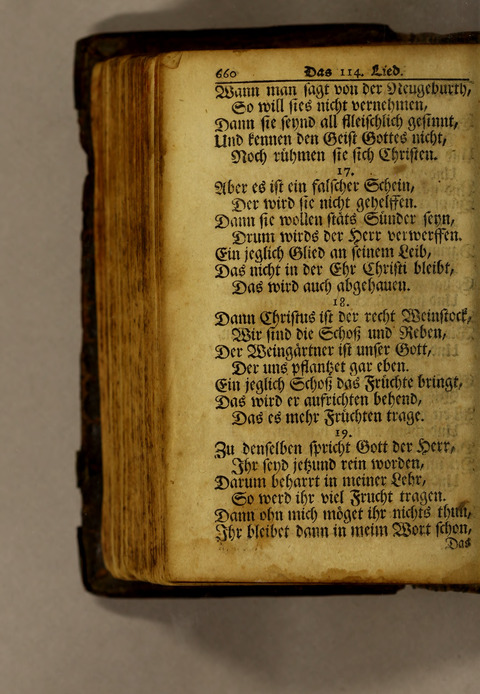 660 Das 114. Lied.
Wann man sagt von der Neugeburth,
So will sies nicht vernehmen,
Dann sie seynd all fleischlich gesinnt,
Und kennen den Geist Gottes nicht,
Noch rühmen sie sich Christen.
17.
Aber es ist ein falscher Schein,
Der wird sie nicht gehelffen.
Dann sie wollen stäts Sünder seyn,
Drum wirds der Herr verwerffen.
Ein jeglich Glied an seinem Leib,
Das nicht in der Ehr Christi bleibt,
Das wird auch abgehauen.
18.
Dann Christus ist der recht Weinstock,
Wir sind die Schoß und Reben,
Der Weingärtner ist unser Gott,
Der uns pflantzet gar eben.
Ein jeglich Schoß das Früchte bringt,
Das wird er aufrichten behend,
Das es mehr Früchten trage.
19.
Zu denselben spricht Gott der Herr,
Ihr seyd jetzund rein worden,
Darum beharrt in meiner Lehr,
So werd ihr viel Frucht tragen.
Dann ohn mich möget ihr nichts thun,
Ihr bleibet dann in meim Wort schon,
Das